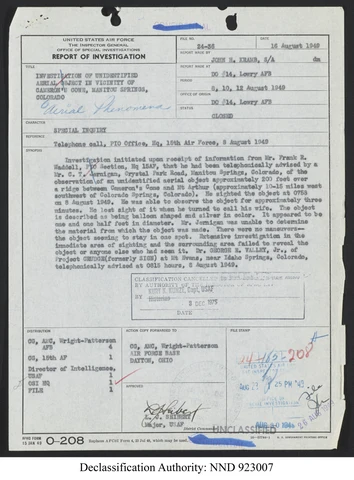 UNITED STATES AIR FORCE
THE INSPECTOR GENERAL
OFFICE OF SPECIAL INVESTIGATIONS
REPORT OF INVESTIGATION
FILE NO.
24-85
DATE
16 August 1949
REPORT MADE BY
JOHN E. KRAMB, S/A
dm
TITLE
INVESTIGATION OF UNIDENTIFIED
AERIAL OBJECT IN VICINITY OF
CAMERON'S CONE, MANITOU SPRINGS,
COLORADO
Aerial Phenomena
REPORT MADE AT
DO #14, Lowry AFB
PERIOD
8, 10, 12 August 1949
OFFICE OF ORIGIN
DO #14, Lowry AFB
STATUS
CLOSED
CHARACTER
SPECIAL INQUIRY
REFERENCE
Telephone call, PIO Office, Hq, 15th Air Force, 8 August 1949
SYNOPSIS
Investigation initiated upon receipt of information from Mr. Frank E.
Haddell, PIO Section, Hq 15AF, that he had been telephonically advised by a
Mr. C. V. Jernigan, Crystal Park Road, Manitou Springs, Colorado, of the
observation of an unidentified aerial object approximately 200 feet over
a ridge between Cameron's Cone and Mt Arthur (approximately 10-15 miles west
southwest of Colorado Springs, Colorado). He sighted the object at 0755
on 8 August 1949. He was able to observe the object for approximately three
minutes. He lost sight of it when he turned to call his wife. The object
is described as being balloon shaped and silver in color. It appeared to be
one and one half feet in diameter. Mr. Jernigan was unable to determine
the material from which the object was made. There were no maneuvers—
the object seeming to stay in one spot. Extensive investigation in the
immediate area of sighting and the surrounding area failed to reveal the
object or anyone else who had seen it. Dr. GEORGE E. VALLEY, Jr., of
Project GRUDGE (formerly SIGN) at Mt Evans, near Idaho Springs, Colorado,
telephonically advised at 0815 hours, 8 August 1949.
CLASSIFICATION CANCELLED
BY AUTHORITY OF
2 DEC 1975
DATE
DISTRIBUTION
CG, AMC, Wright-Patterson
AFB 4
CG, 15th AF 1
Director of Intelligence,
USAF 1
OSI HQ
FILE
ACTION COPY FORWARDED TO
CG, AMC, Wright-Patterson
AIR FORCE BASE
DAYTON, OHIO
APPROVED
Major, USAF
FILE STAMP
208
AFHQ FORM
O-208
Replaces AFCSI Form 4, 23 Jul 48, which may be used.
Declassification Authority: NND 923007